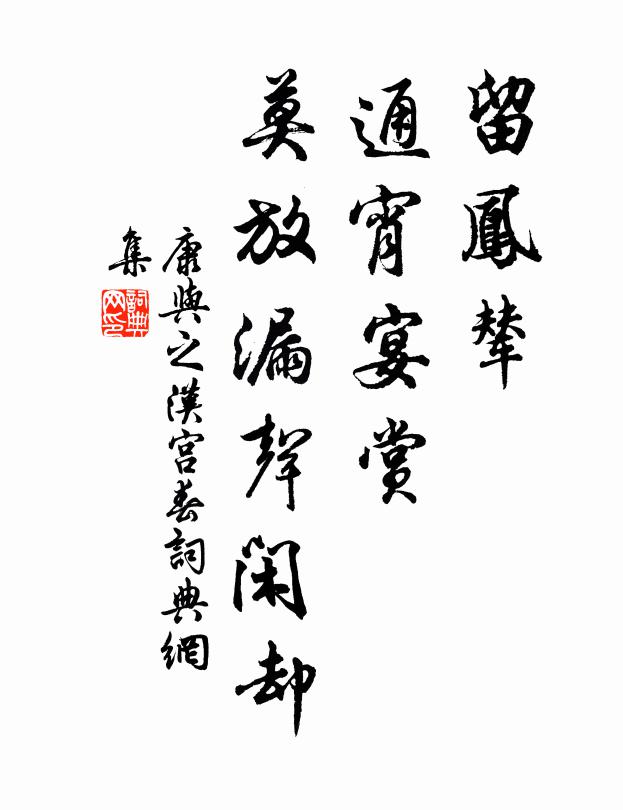 留鳳輦
通宵宴賞
莫放漏聲閑却
康與之漢宮春詞典網
集
詞典網印